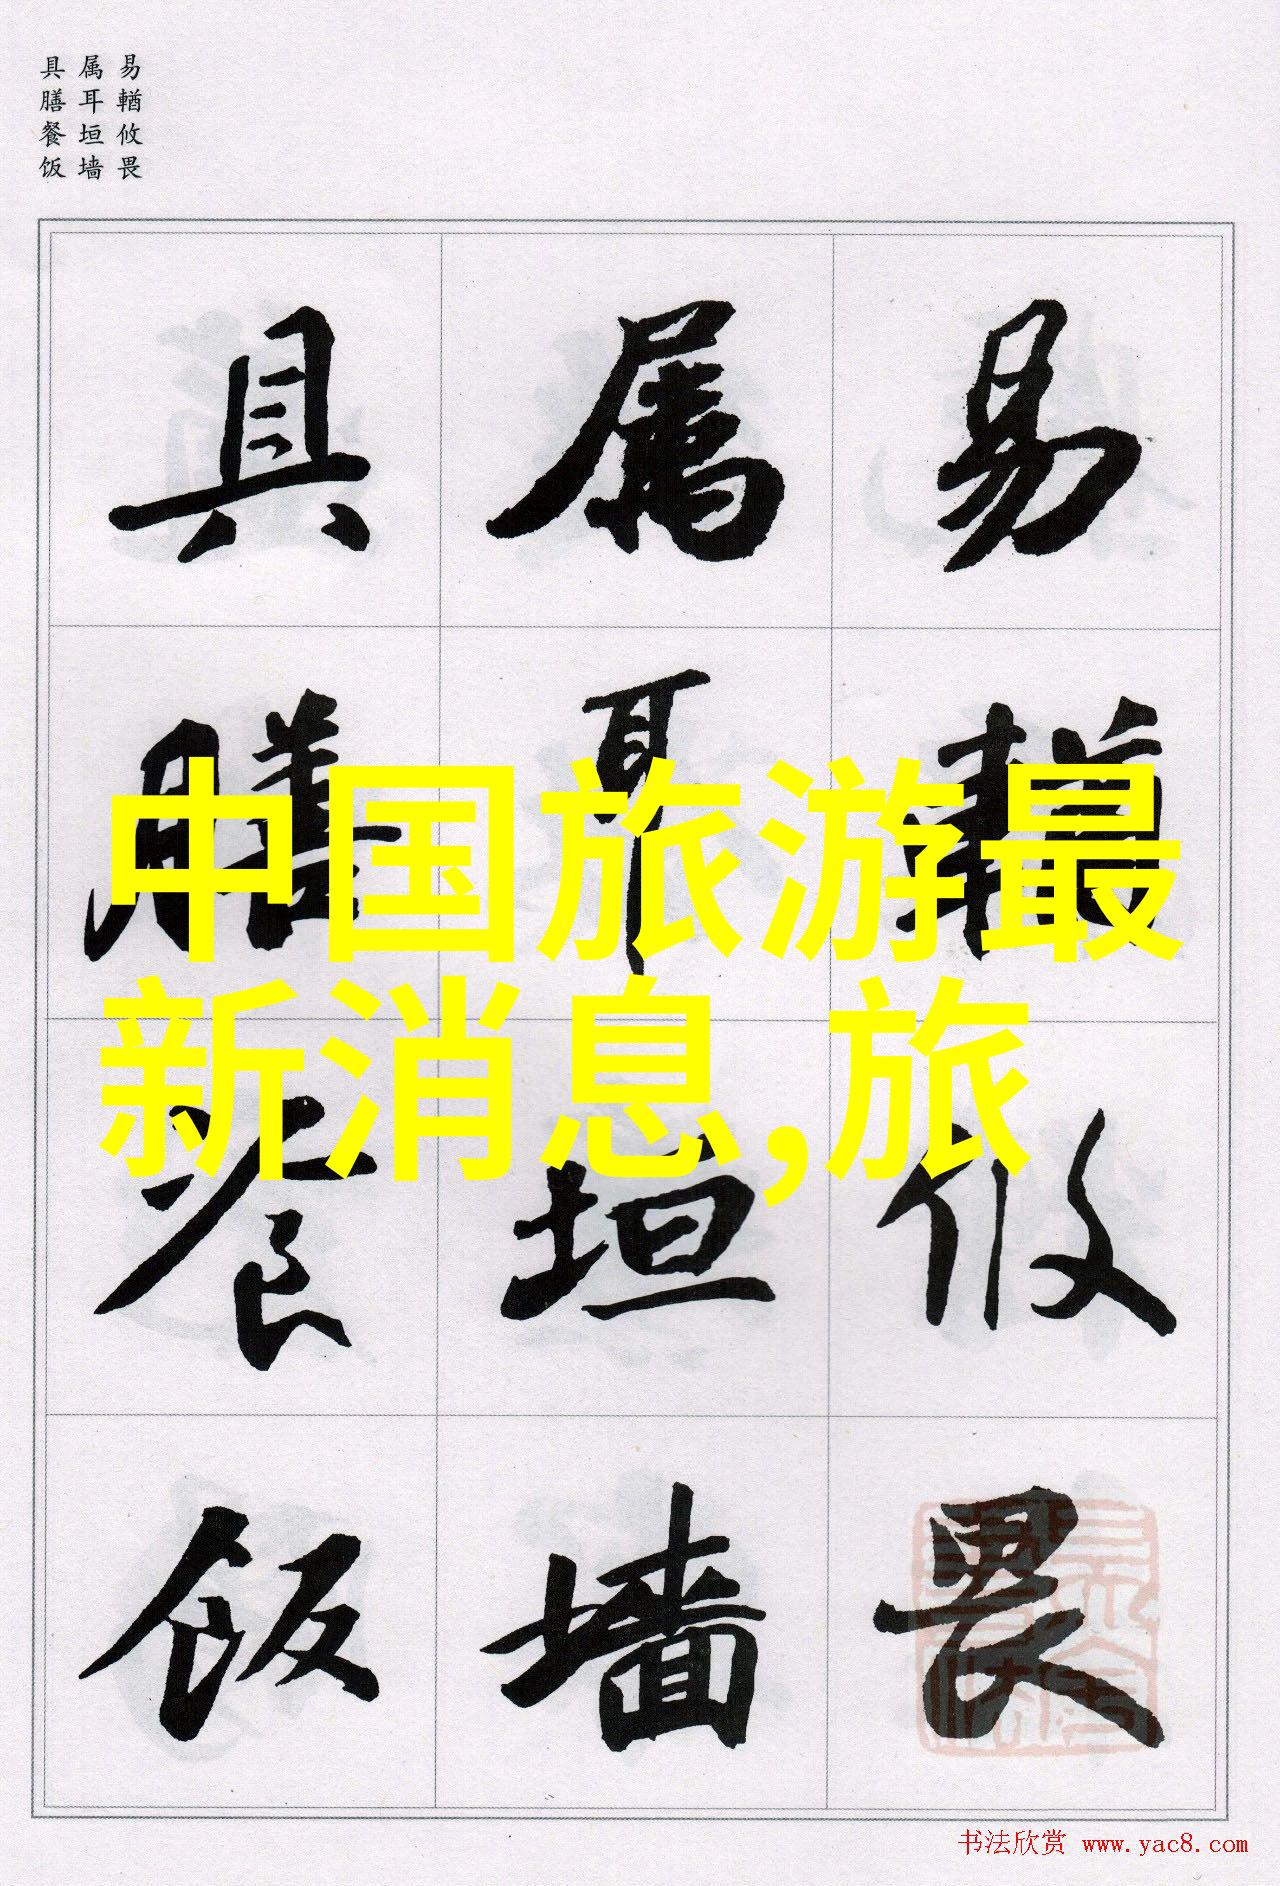 易輶攸畏
属耳垣墙
具膳餐饭
易輶攸畏
属耳垣墙
具膳餐饭
中国旅游最
新消息,旅
书法欣赏 www.yac8.com